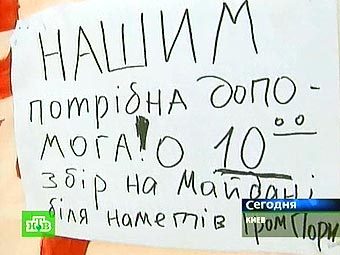 НАШИМ
потрібна допо-
мога! о 10⁰⁰
збір на Майдані
біля наметів ГромПори
Сегодня
КИЕВ
НТВ